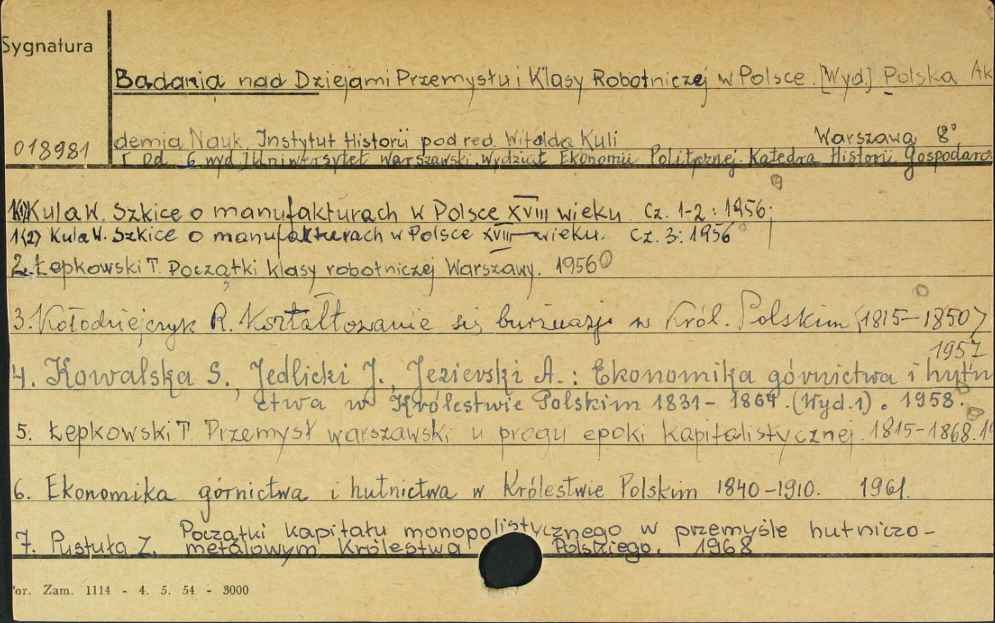 Sygnatura
Badania nad Dziejami Przemysłu i Klasy Robotniczej w Polsce. [Wyd.] Polska Ak
018981
demia Nauk. Instytut Historii pod red. Witolda Kuli Warszawa 8°
[od 6 wyd.] Uniwersytet Warszawski. Wydział Ekonomii Politycznej. Katedra Historii Gospodarcz
1(1) Kula W. Szkice o manufakturach w Polsce XVIII wieku Cz. 1-2: 1956;
1(2) Kula W. Szkice o manufakturach w Polsce XVIII wieku. Cz. 3: 1956
2. Łepkowski T. Początki klasy robotniczej Warszawy. 1956
3. Kołodziejczyk R. Kształtowanie się burżuazji w Król. Polskim (1815-1850)
1957
4. Kowalska S., Jedlicki J., Jezierski A.: Ekonomika górnictwa i hutn
ctwa w Królestwie Polskim 1831-1864. (Wyd. 1). 1958.
5. Łepkowski T Przemysł warszawski u progu epoki kapitalistycznej. 1815-1868. 19
6. Ekonomika górnictwa i hutnictwa w Królestwie Polskim 1840-1910. 1961.
7. Pustuła Z. Początki kapitału monopolistycznego w przemyśle hutniczo-
metalowym Królestwa Polskiego. 1968
or. Zam. 1114 - 4. 5. 54 - 3000